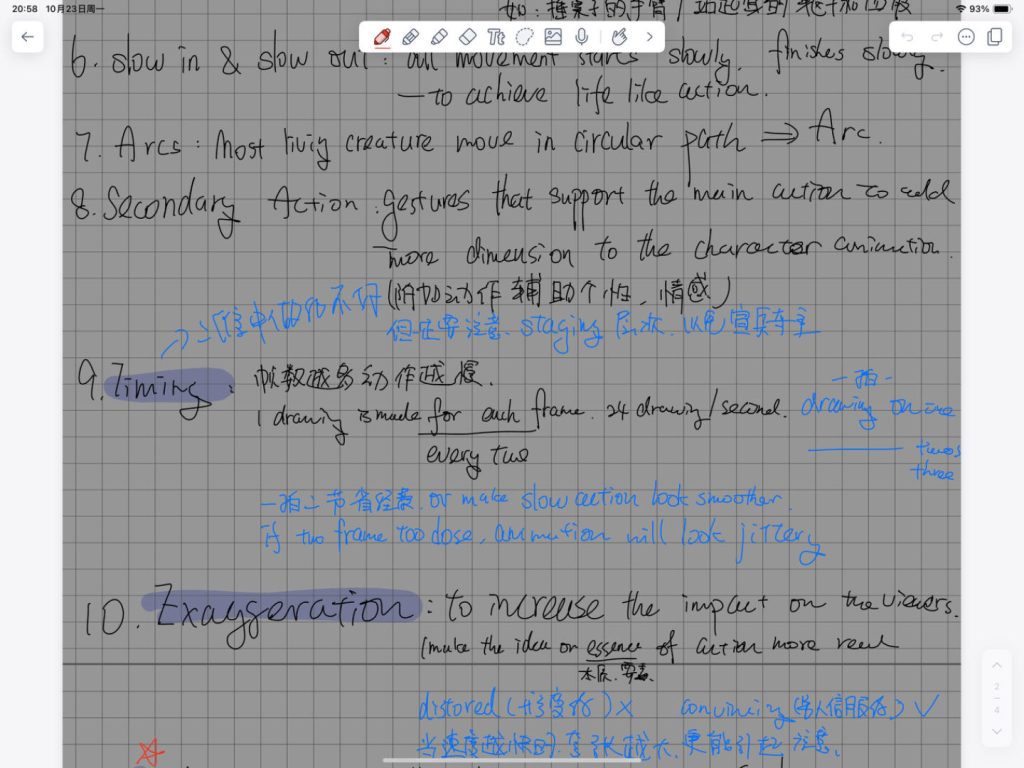 20:58 10月23日周一
93%
如：
6. slow in & slow out : all movement starts slowly, finishes slowly.
— to achieve life like action.
7. Arcs : Most living creature move in circular path ⇒ Arc.
8. Secondary Action : gestures that support the main action to add
more dimension to the character animation.
(附加动作辅助个性、情感)
→ 中做的不好
但也要注意、staging 层次、以免喧宾夺主
9. Timing : 帧数越多动作越慢.
1 drawing is made for each frame. 24 drawing/second.
every two
一拍一
drawing on one
twos
three
一拍二节省经费, or make slow action look smoother.
If two frame too close, animation will look jittery
10. Exaggeration : to increase the impact on the viewers.
(make the idea or essence of action more real
本质、要素.
distored (形变的) × convincing (令人信服的) ✓
当速度越快时, 夸张越大, 更能引起注意.
2
4